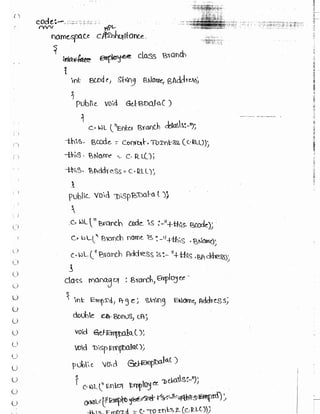 code:-
namespace c#Inheritance.
{
interface Employee class Branch
{
int Bcode; String BName, BAddress;
}
Public void GetBData( )
{
C.WL ("Enter Branch details:-");
this. Bcode = Convert.ToInt32 (C.RL());
this. BName = C.RL();
this. BAddress = C.RL();
}
Public void DispBData( )
{
C.WL(" Branch code is :-"+this.Bcode);
C.WL(" Branch name is :-"+this.BName);
C.WL(" Branch Address is:- "+this.BAddress);
}
class manager : Branch, Employee
{ int EmpId, Age; String EName, Address;
double Bonus, CA;
void GetEmpData( );
void DispEmpData( );
Public void GetEmpData( )
{ C.WL ("Enter Employee Details:-");
this.EmpId = C.ToInt32 (C.RL());